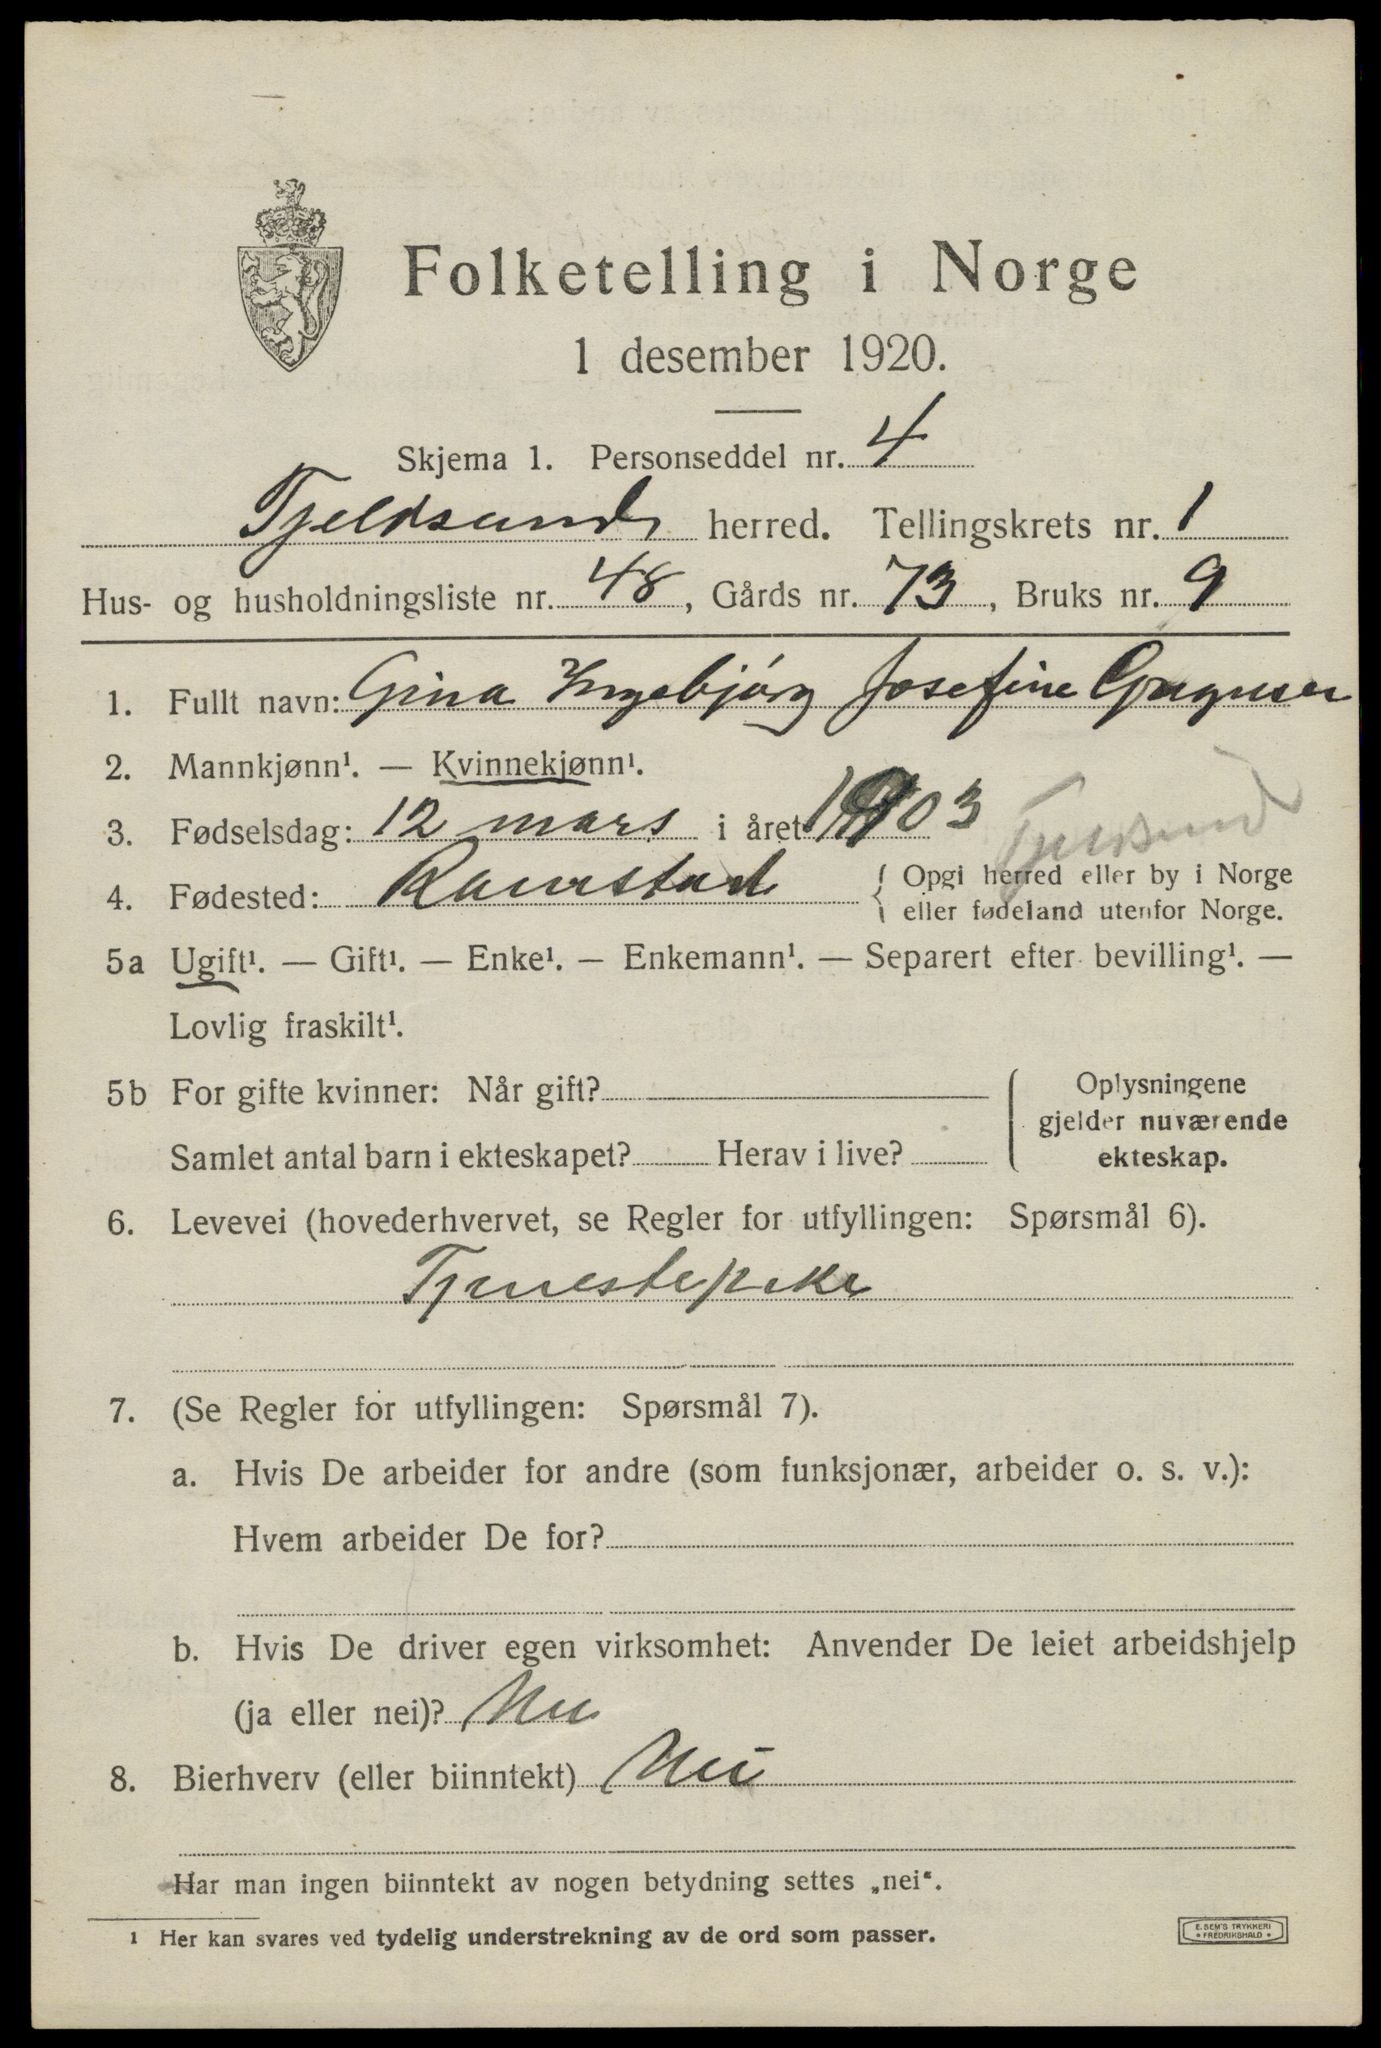 Folketelling i Norge
1 desember 1920.
Skjema 1. Personseddel nr. 4
Tjeldsund herred. Tellingskrets nr. 1
Hus- og husholdningsliste nr. 48, Gårds nr. 73, Bruks nr. 9
1. Fullt navn: Gina Ingebjörg Josefine
2. Mannkjønn¹. — Kvinnekjønn¹.
3. Fødselsdag: 12 mars i året 1903
Tjeldsund
4. Fødested: Ramstad { Opgi herred eller by i Norge
eller fødeland utenfor Norge.
5a Ugift¹. — Gift¹. — Enke¹. — Enkemann¹. — Separert efter bevilling¹. —
Lovlig fraskilt¹.
5b For gifte kvinner: Når gift?
Samlet antal barn i ekteskapet? Herav i live?
Oplysningene
gjelder nuværende
ekteskap.
6. Levevei (hovederhvervet, se Regler for utfyllingen: Spørsmål 6).
Tjenestepike
7. (Se Regler for utfyllingen: Spørsmål 7).
a. Hvis De arbeider for andre (som funksjonær, arbeider o. s. v.):
Hvem arbeider De for?
b. Hvis De driver egen virksomhet: Anvender De leiet arbeidshjelp
(ja eller nei)? Nei
8. Bierhverv (eller biinntekt) Nei
Har man ingen biinntekt av nogen betydning settes „nei“.
1 Her kan svares ved tydelig understrekning av de ord som passer.
E. SEM'S TRYKKERI
FREDRIKSHALD